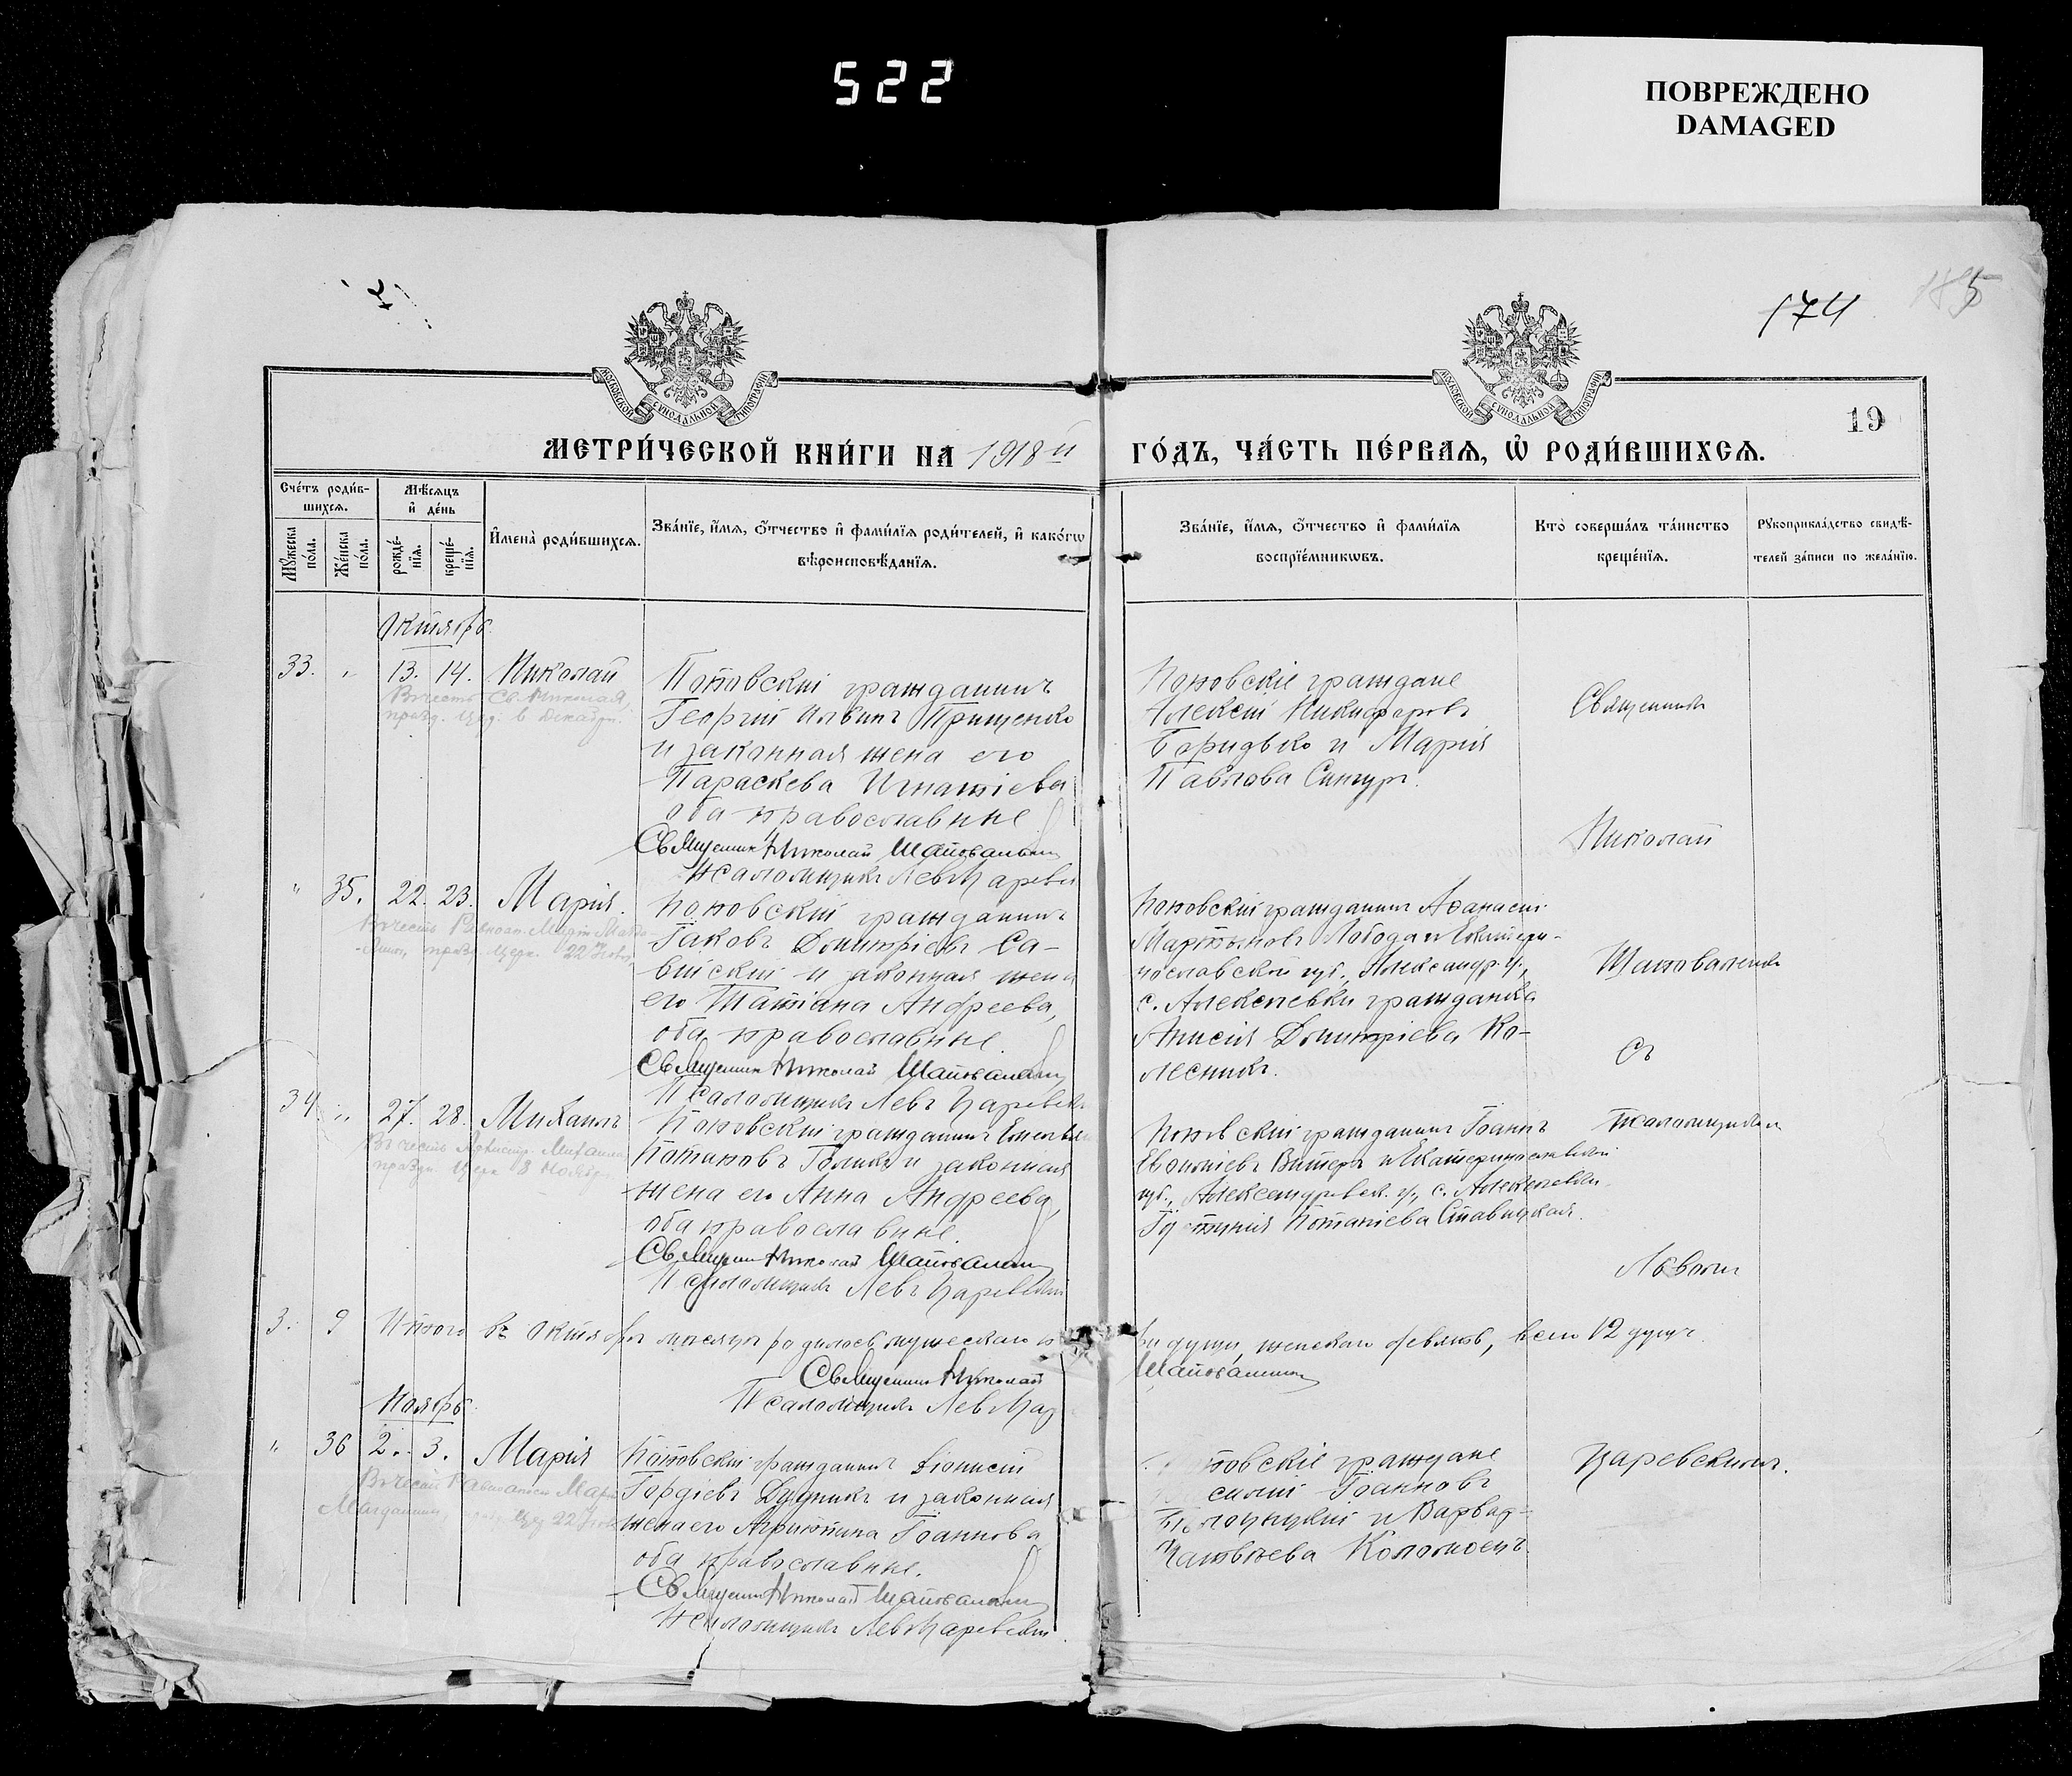 522
ПОВРЕЖДЕНО
DAMAGED
174
19
МЕТРИ́ЧЕСКОЙ КНИ́ГИ НА 1918 й ГО́ДЪ, ЧА́СТЬ ПЕ́РВАѦ, Ѡ РОДИ́ВШИХСѦ.
Сче́тъ роди́в-
шихсѧ.
Мꙋ́жеска по́ла.
Же́нска по́ла.
Мѣ́сѧцъ
и҆ де́нь
рожде́-
нїѧ.
креще́-
нїѧ.
И҆мена̀ роди́вшихсѧ.
Зва́нїе, и҆́мѧ, ѻ҆́тчество и҆ фами́лїѧ роди́телей, и҆ како́гѡ
вѣроисповѣ́данїѧ.
Зва́нїе, и҆́мѧ, ѻ҆́тчество и҆ фами́лїѧ
воспрїе́мникѡвъ.
Кто̀ соверша́лъ та́инство
креще́нїѧ.
Рꙋкоприкла́дство свидѣ́-
телей за́писи по жела́нїю.
Октябрь
33. " 13. 14. Николай
Въ честь Св. Николая,
празд. Цер. 6 Декабр.
Поповскій гражданинъ
Георгій Прищенко
и законная жена его
Параскева Игнатіева
оба православные
Священник Николай Шаповаленко
Псаломщикъ Левъ Царевск
Поповскіе граждане
Алексій Никифоровъ
и Марія
Павлова Сингур.
Священникъ
Николай
" 35. 22. 23. Марія.
Въ честь Равноап. Маріи Магда-
празд. Церк. 22 Іюля
Поповскій гражданинъ
Іаковъ Димитріевъ Са-
війскій и законная жена
его Татіана Андреева,
оба православные.
Священник Николай Шаповаленко
Псаломщикъ Левъ Царевск
Поповскій гражданинъ Аѳанасій
Мартыновъ Лобода и Екатери-
нославской губ., Александр. у.,
с. Алексѣевки гражданка
Анисія Димитріева Ко-
лесникъ.
Шаповаленко
Съ
34. " 27. 28. Михаилъ
Въ честь Архистр. Михаила
праздн. Церк 8 Ноябр.
Поповскій гражданинъ
и законная
жена его Анна Андреева,
оба православные.
Священник Николай Шаповаленко
Псаломщикъ Левъ Царевскій
Поповскій гражданинъ Іоаннъ
и Екатеринославской
губ., Александровск. у., с. Алексѣевки
Іустинія Ставицкая.
Псаломщикомъ
Львомъ
3. 9 Итого въ Октябрѣ мѣсяцѣ родилось мужескаго три души, женскаго девять, всего 12 душъ.
Священник Николай Шаповаленко
Псаломщикъ Левъ Цар
Ноябрь
" 36 2. 3. Марія
Въ честь Равноапост. Маріи
Магдалины, Цер 22 Іюля
Поповскій гражданинъ Діонисій
Гордіевъ Дудникъ и законная
жена его Агрипина Іоаннова
оба православные.
Священник Николай Шаповаленко
Псаломщикъ Левъ Царевскій
повскіе граждане
силій Іоанновъ
и Варвар-
Матвѣева Коломоецъ.
Царевскимъ.